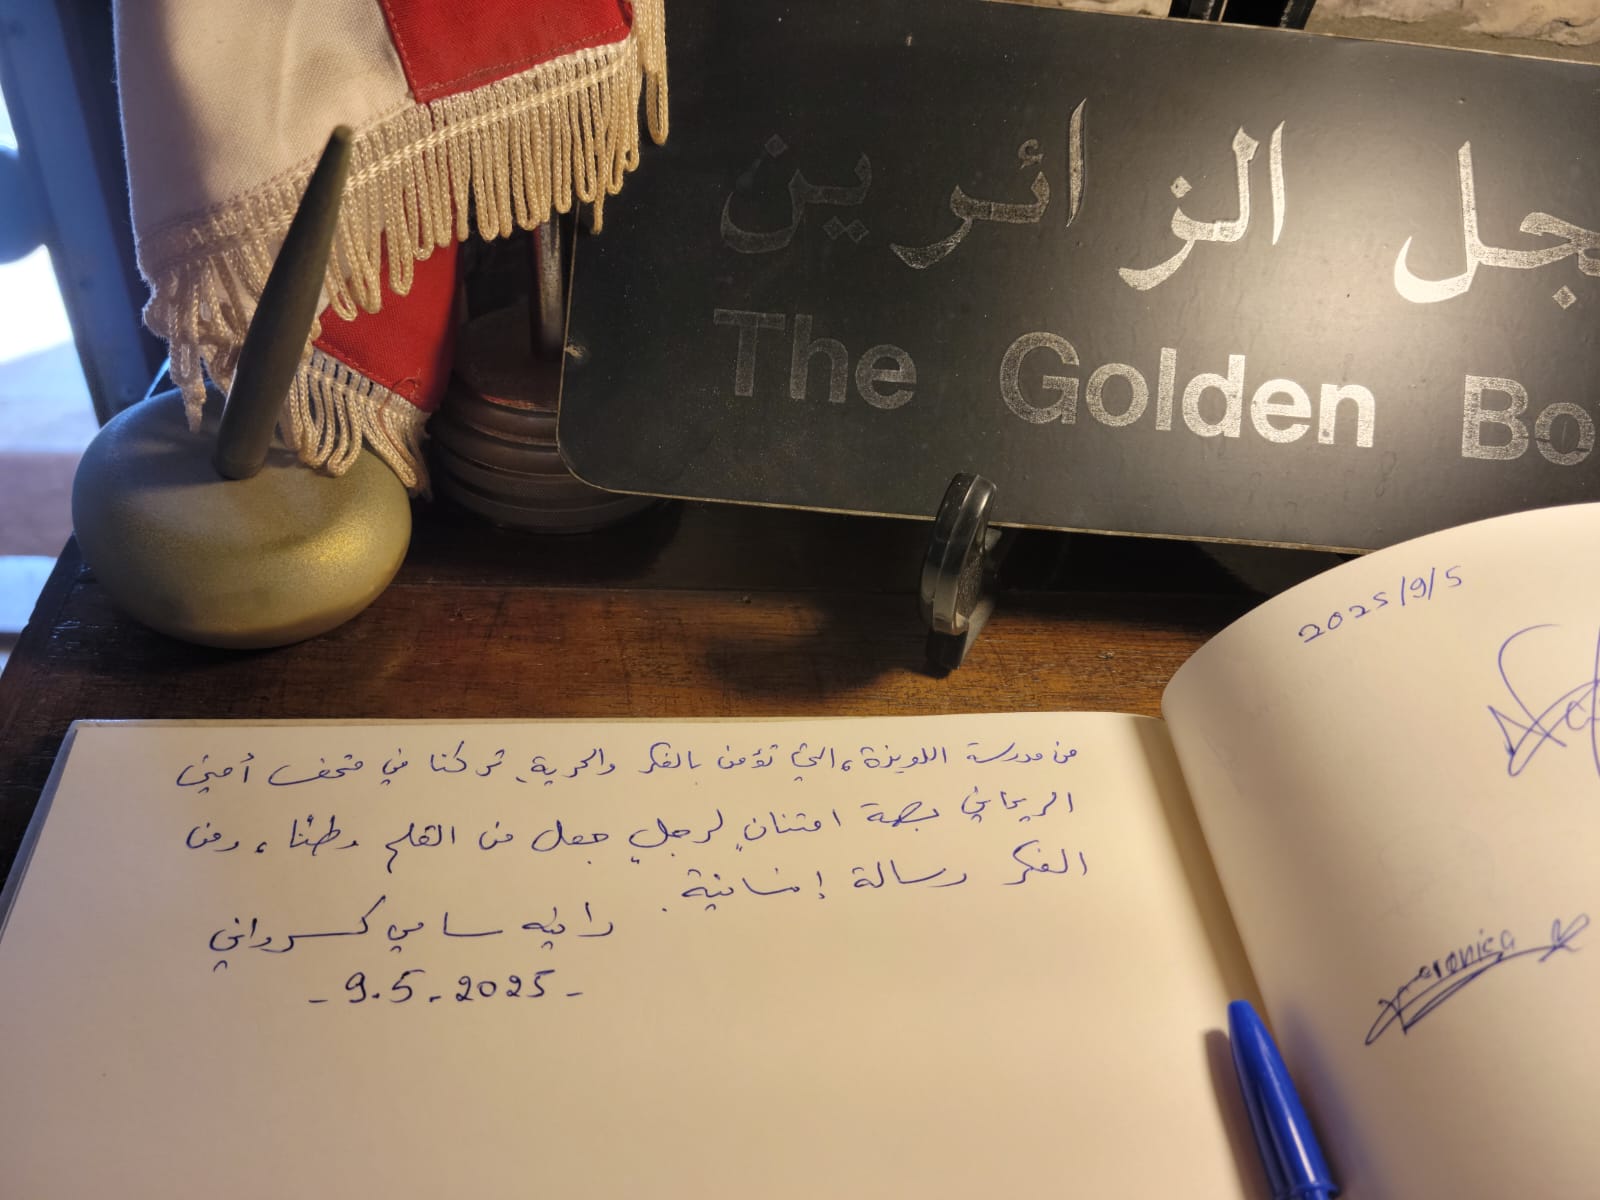 سجل الزائرين
The Golden Bo
من مدرسة اللويزة، التي تؤمن بالفكر والحرية، تركنا في متحف أمين
الريحاني بصمة امتنانٍ لرجلٍ جعل من القلم وطنًا، ومن
الفكر رسالة إنسانية.
رانيه سامي كسرواني
- 9.5.2025 -
2025/9/5
Veronica